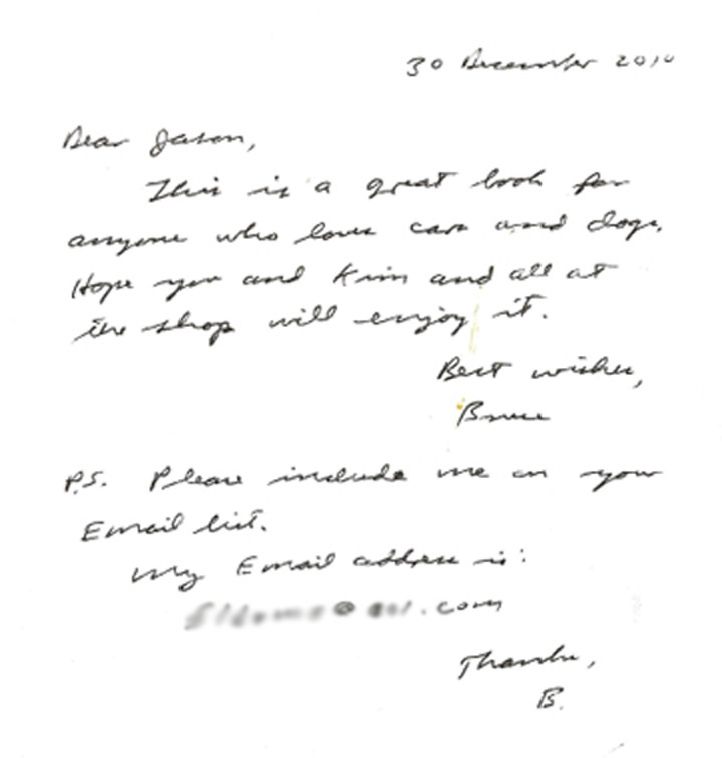 30 December 2010
Dear Jason,
This is a great book for
anyone who loves cars and dogs.
Hope you and Kim and all at
the shop will enjoy it.
Best wishes,
Bruce
P.S. Please include me on your
Email list.
My Email address is:
.com
Thanks,
B.